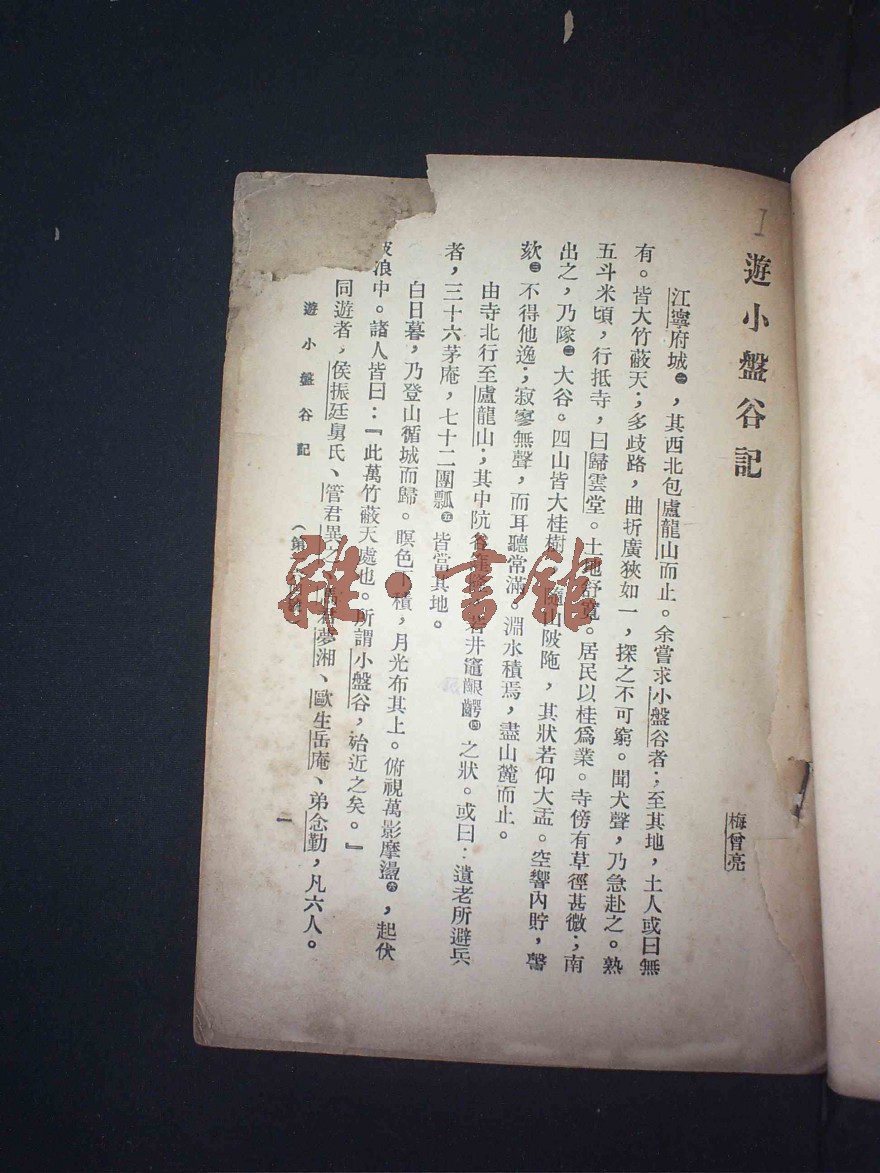 遊小盤谷記
梅曾亮
江寧府城㊀，其西北包盧龍山而止。余嘗求小盤谷者；至其地，土人或曰無
有。皆大竹蔽天；多歧路，曲折廣狹如一，探之不可窮。聞犬聲，乃急赴之。熟
五斗米頃，行抵寺，曰歸雲堂。土地舒寬。居民以桂爲業。寺傍有草徑甚微；南
出之，乃隊㊁大谷。四山皆大桂樹，隨山陂陁，其狀若仰大盂。空響內貯，謦
欬㊂不得他逸；寂寥無聲，而耳聽常滿。淵水積焉，盡山麓而止。
由寺北行至盧龍山；其中阬谷 若井竈齦齶㊃之狀。或曰：遺老所避兵
者，三十六茅庵，七十二團瓢㊄皆當其地。
白日暮，乃登山循城而歸。暝色下積，月光布其上。俯視萬影摩盪㊅，起伏
浪中。諸人皆曰：『此萬竹蔽天處也。所謂小盤谷，殆近之矣。』
同遊者，侯振廷舅氏、管君異之、馬君夢湘、歐生岳庵、弟念勤，凡六人。
遊小盤谷記
(第
一
雜·書館
1